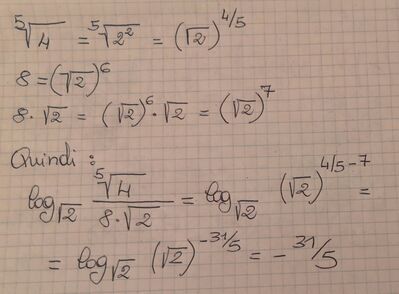 ⁵√4 = ⁵√2² = (√2)^4/5
8 = (√2)⁶
8·√2 = (√2)⁶·√2 = (√2)⁷
Quindi :
log_√2 ⁵√4 / 8·√2 = log_√2 (√2)^4/5-7 =
= log_√2 (√2)^-31/5 = - 31/5